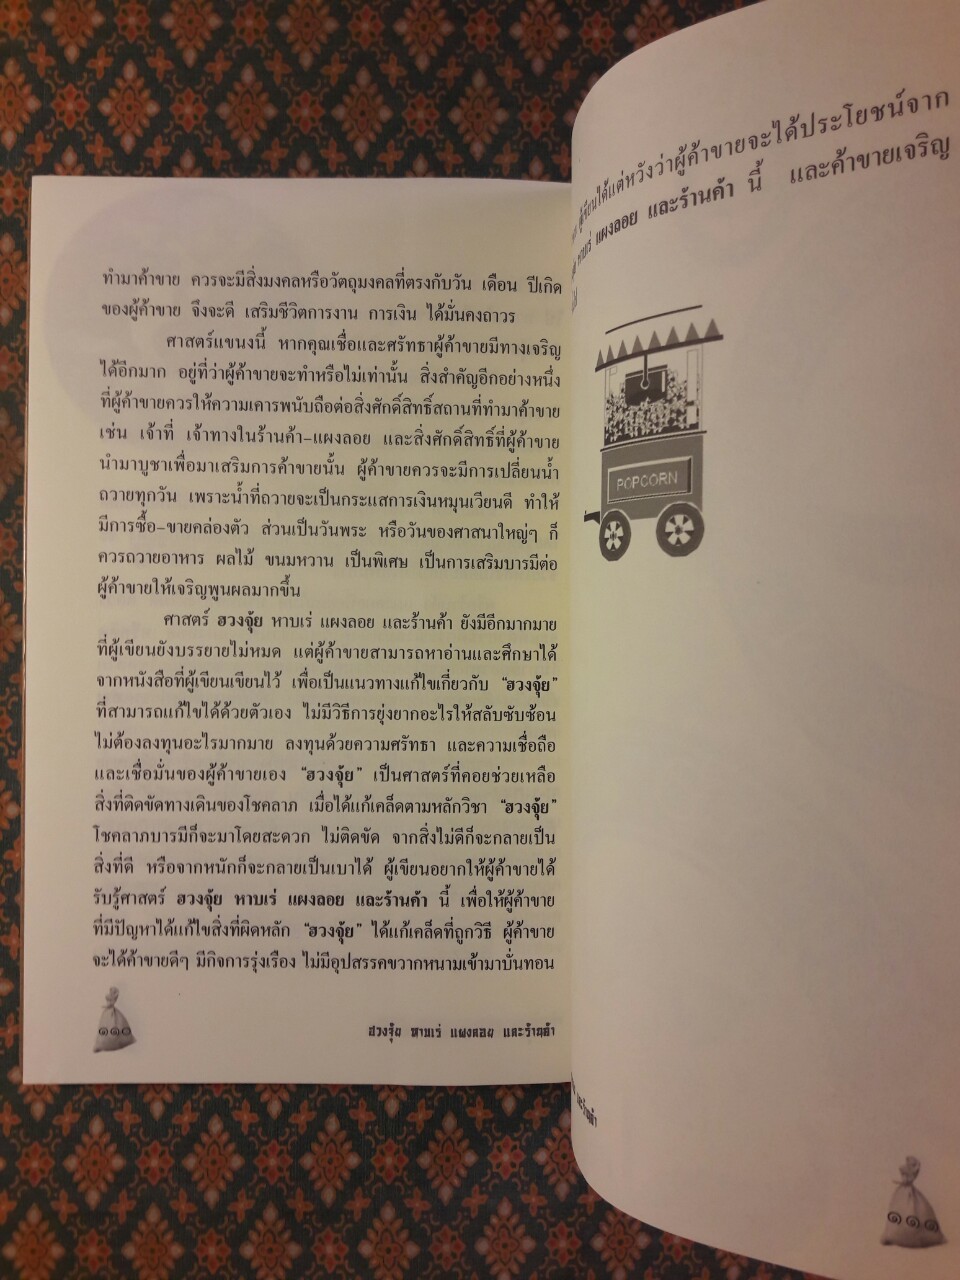 ทำมาค้าขาย ควรจะมีสิ่งมงคลหรือวัตถุมงคลที่ตรงกับวัน เดือน ปีเกิด
ของผู้ค้าขาย จึงจะดี เสริมชีวิตการงาน การเงิน ได้มั่นคงถาวร
ศาสตร์แขนงนี้ หากคุณเชื่อและศรัทธาผู้ค้าขายมีทางเจริญ
ได้อีกมาก อยู่ที่ว่าผู้ค้าขายจะทำหรือไม่เท่านั้น สิ่งสำคัญอีกอย่างหนึ่ง
ที่ผู้ค้าขายควรให้ความเคารพนับถือต่อสิ่งศักดิ์สิทธิ์สถานที่ทำมาค้าขาย
เช่น เจ้าที่ เจ้าทางในร้านค้า-แผงลอย และสิ่งศักดิ์สิทธิ์ที่ผู้ค้าขาย
นำมาบูชาเพื่อมาเสริมการค้าขายนั้น ผู้ค้าขายควรจะมีการเปลี่ยนน้ำ
ถวายทุกวัน เพราะน้ำที่ถวายจะเป็นกระแสการเงินหมุนเวียนดี ทำให้
มีการซื้อ-ขายคล่องตัว ส่วนเป็นวันพระ หรือวันของศาสนาใหญ่ๆ ก็
ควรถวายอาหาร ผลไม้ ขนมหวาน เป็นพิเศษ เป็นการเสริมบารมีต่อ
ผู้ค้าขายให้เจริญพูนผลมากขึ้น
ศาสตร์ ฮวงจุ้ย หาบเร่ แผงลอย และร้านค้า ยังมีอีกมากมาย
ที่ผู้เขียนยังบรรยายไม่หมด แต่ผู้ค้าขายสามารถหาอ่านและศึกษาได้
จากหนังสือที่ผู้เขียนเขียนไว้ เพื่อเป็นแนวทางแก้ไขเกี่ยวกับ “ฮวงจุ้ย”
ที่สามารถแก้ไขได้ด้วยตัวเอง ไม่มีวิธีการยุ่งยากอะไรให้สลับซับซ้อน
ไม่ต้องลงทุนอะไรมากมาย ลงทุนด้วยความศรัทธา และความเชื่อถือ
และเชื่อมั่นของผู้ค้าขายเอง “ฮวงจุ้ย” เป็นศาสตร์ที่คอยช่วยเหลือ
สิ่งที่ติดขัดทางเดินของโชคลาภ เมื่อได้แก้เคล็ดตามหลักวิชา “ฮวงจุ้ย”
โชคลาภบารมีก็จะมาโดยสะดวก ไม่ติดขัด จากสิ่งไม่ดีก็จะกลายเป็น
สิ่งที่ดี หรือจากหนักก็จะกลายเป็นเบาได้ ผู้เขียนอยากให้ผู้ค้าขายได้
รับรู้ศาสตร์ ฮวงจุ้ย หาบเร่ แผงลอย และร้านค้า นี้ เพื่อให้ผู้ค้าขาย
ที่มีปัญหาได้แก้ไขสิ่งที่ผิดหลัก “ฮวงจุ้ย” ได้แก้เคล็ดที่ถูกวิธี ผู้ค้าขาย
จะได้ค้าขายดีๆ มีกิจการรุ่งเรือง ไม่มีอุปสรรคขวากหนามเข้ามาบั่นทอน
๑๑๐
ฮวงจุ้ย หาบเร่ แผงลอย และร้านค้า
ผู้เขียนได้แต่หวังว่าผู้ค้าขายจะได้ประโยชน์จาก
หาบเร่ แผงลอย และร้านค้า นี้ และค้าขายเจริญ
POPCORN
และร้านค้า
๑๑๑